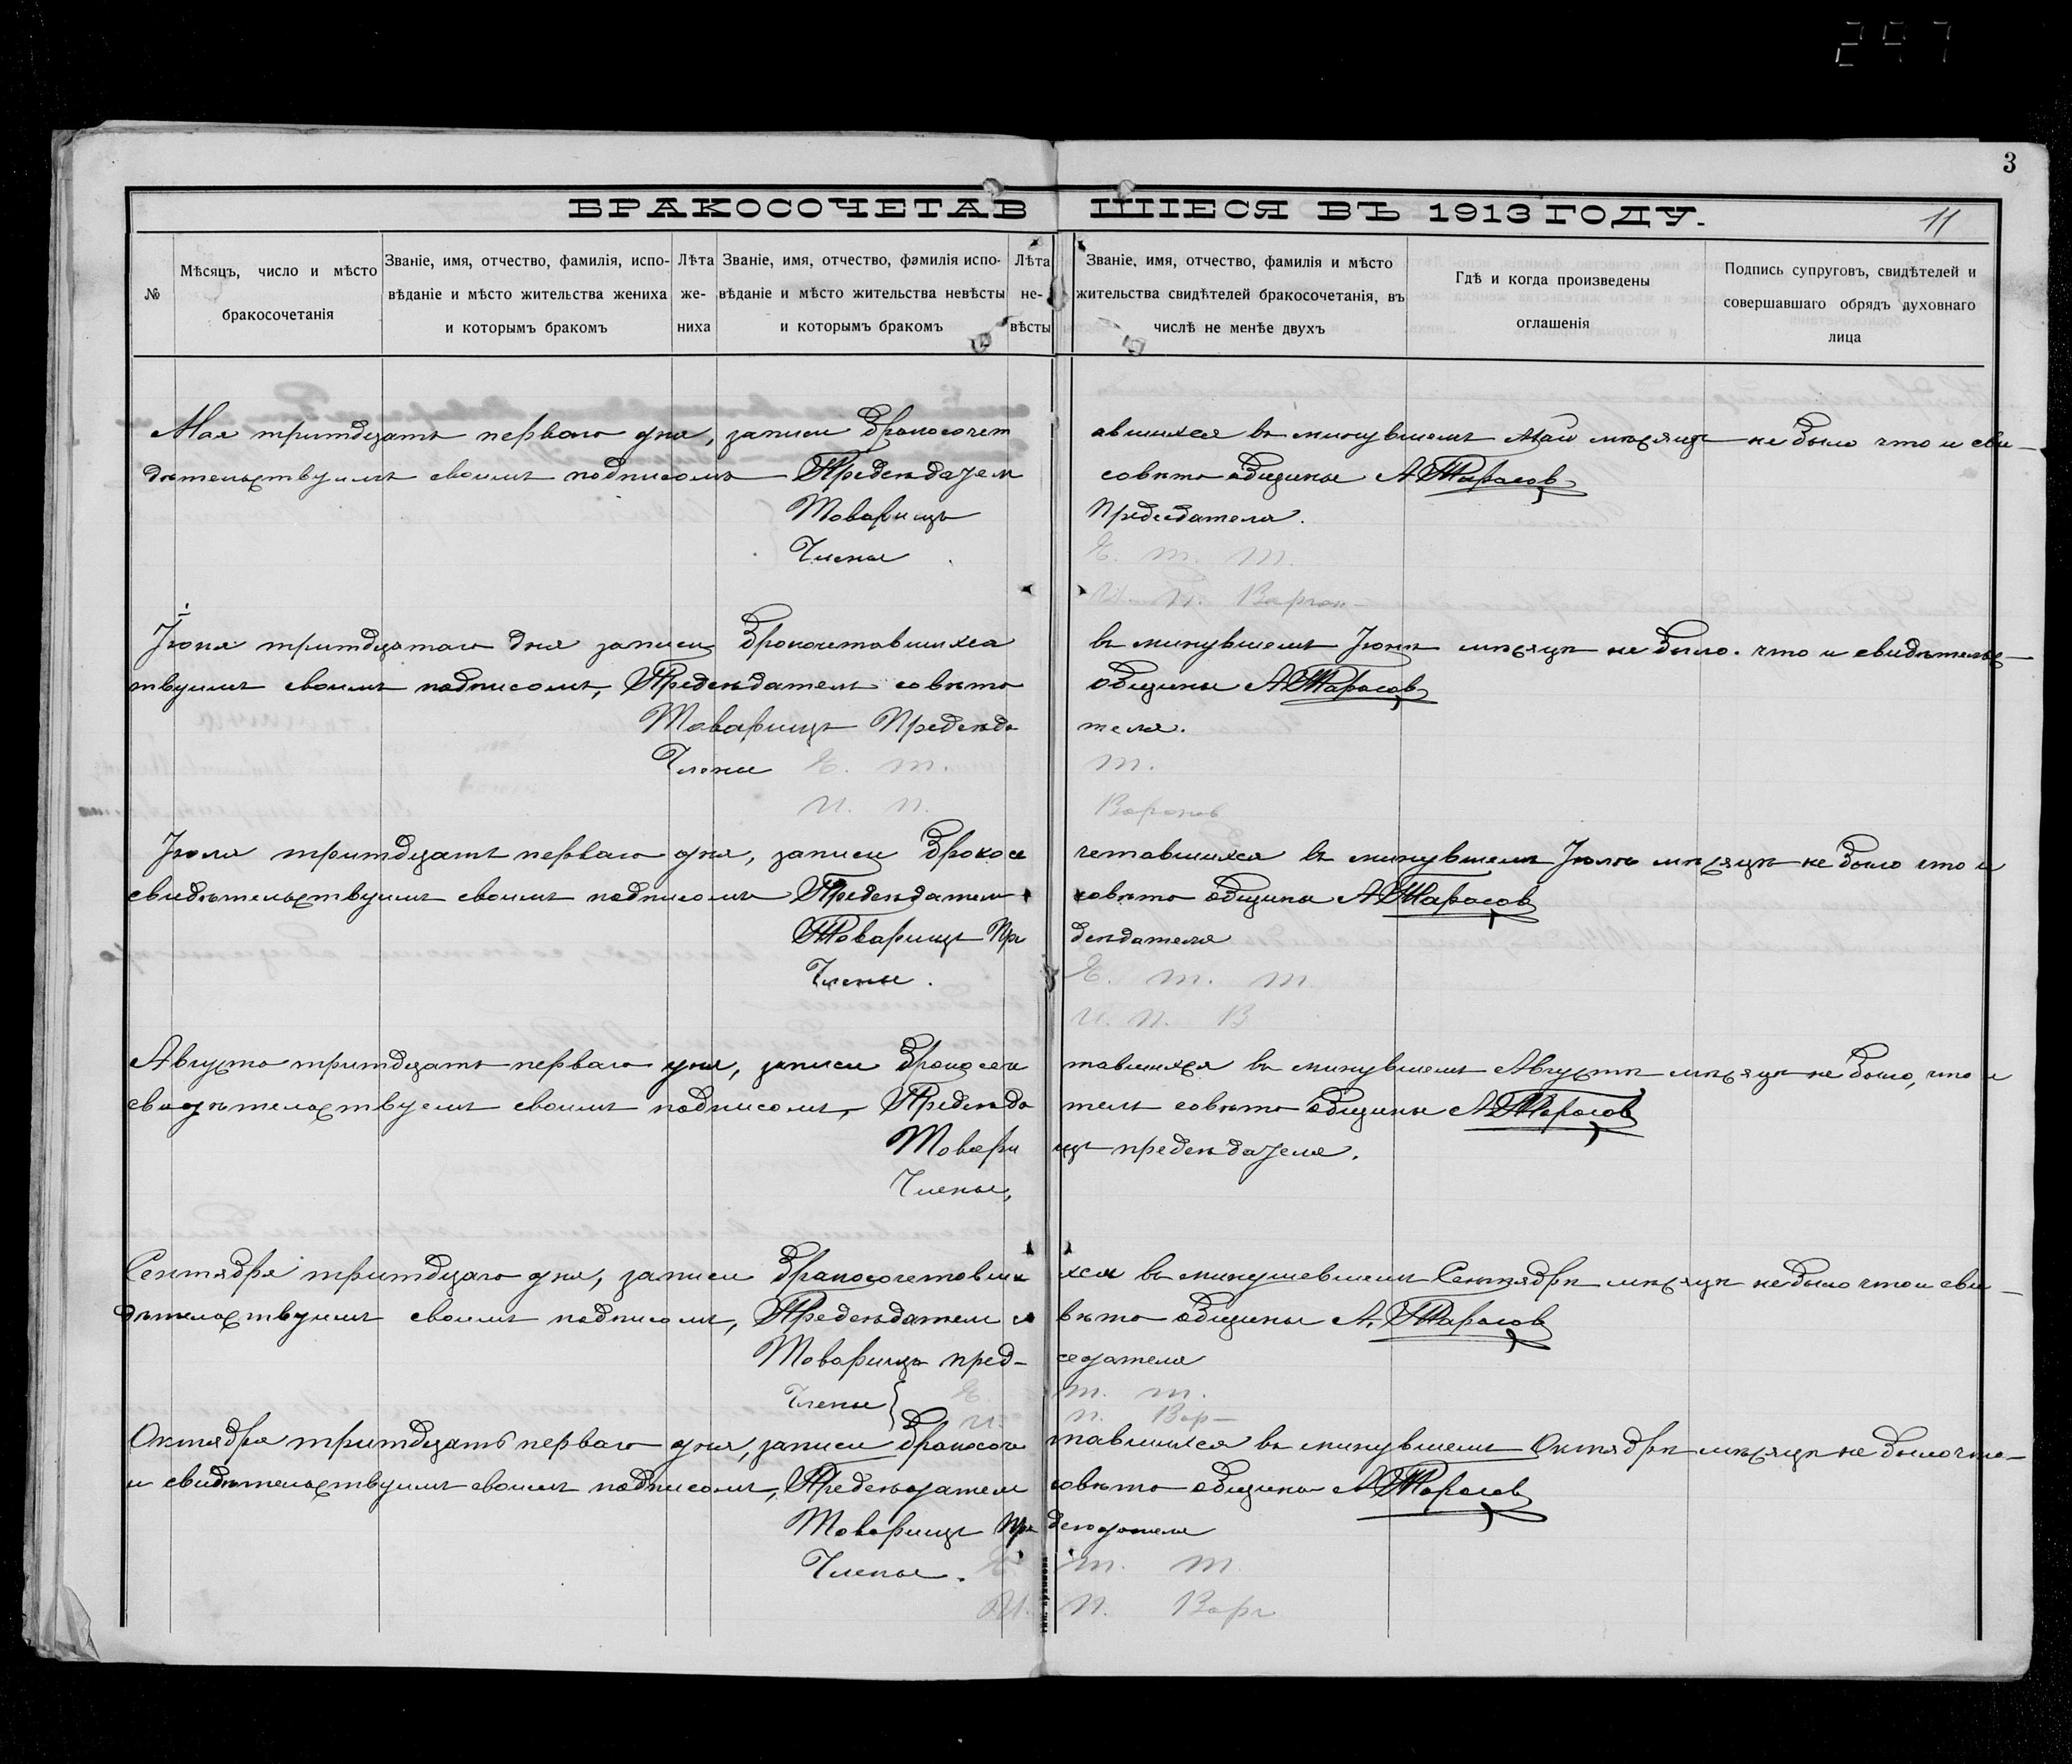 297
3
БРАКОСОЧЕТАВШІЕСЯ ВЪ 1913 ГОДУ.
11
№
Мѣсяцъ, число и мѣсто
бракосочетанія
Званіе, имя, отчество, фамилія, испо-
вѣданіе и мѣсто жительства жениха
и которымъ бракомъ
Лѣта
же-
ниха
Званіе, имя, отчество, фамилія испо-
вѣданіе и мѣсто жительства невѣсты
и которымъ бракомъ
Лѣта
не-
вѣсты
Званіе, имя, отчество, фамилія и мѣсто
жительства свидѣтелей бракосочетанія, въ
числѣ не менѣе двухъ
Гдѣ и когда произведены
оглашенія
Подпись супруговъ, свидѣтелей и
совершавшаго обрядъ духовнаго
лица
Мая тритдцать перваго дня, записи бракосочетавшихся въ минувшемъ Маи мѣсяцѣ не было что и сви-
дѣтельствуимъ своимъ подписомъ Предсѣдатель совѣта общины А Тарасов
Товарищъ Предсѣдателя.
Члены Е. т. т.
И. П. Варгон-
Іюня тритдцатаго дня записи брокочетавшихся въ минувшемъ Іюнѣ мѣсяцѣ не было. что и свидѣтельс-
твуимъ своимъ подписомъ, Предсѣдатель совѣта общины А Тарасов
Товарищъ Предсѣдателя.
Члены Е. т. т.
И. П. Воронов
Іюля тритдцать перваго дня, записи бракосочетавшихся въ минувшемъ Іюлѣ мѣсяцѣ не было что и
свидѣтельствуимъ своимъ подписомъ Предсѣдатель совѣта общины А Тарасов
Товарищъ Предсѣдателя
Члены. Е. т. т
И. П. В
Августа тритдцать перваго дня, записи бракосочетавшихся въ минувшемъ Августѣ мѣсяцѣ не было, что и
свидѣтельствуемъ своимъ подписомъ, Предсѣдатель совѣта общины А Тарасов
Товарищъ предсѣдателя.
Члены,
Сентября тритдцаго дня, записи бракосочетавшихся въ минушевшемъ Сентябрѣ мѣсяцѣ не было что и сви-
дѣтельствуимъ своимъ подписомъ, Предсѣдатель совѣта общины А. Тарасов
Товарищъ пред-седателя
Члены Е т. т.
И. П. Вор-
Октября тритдцать перваго дня, записи бракосочетавшихся въ минувшемъ Октябрѣ мѣсяцѣ не было что-
и свидѣтельствуимъ своимъ подписомъ, Предсѣдатель совѣта общины А Тарасов
Товарищъ Предсѣдателя
Члены. Е. т. т
И. П. Варг